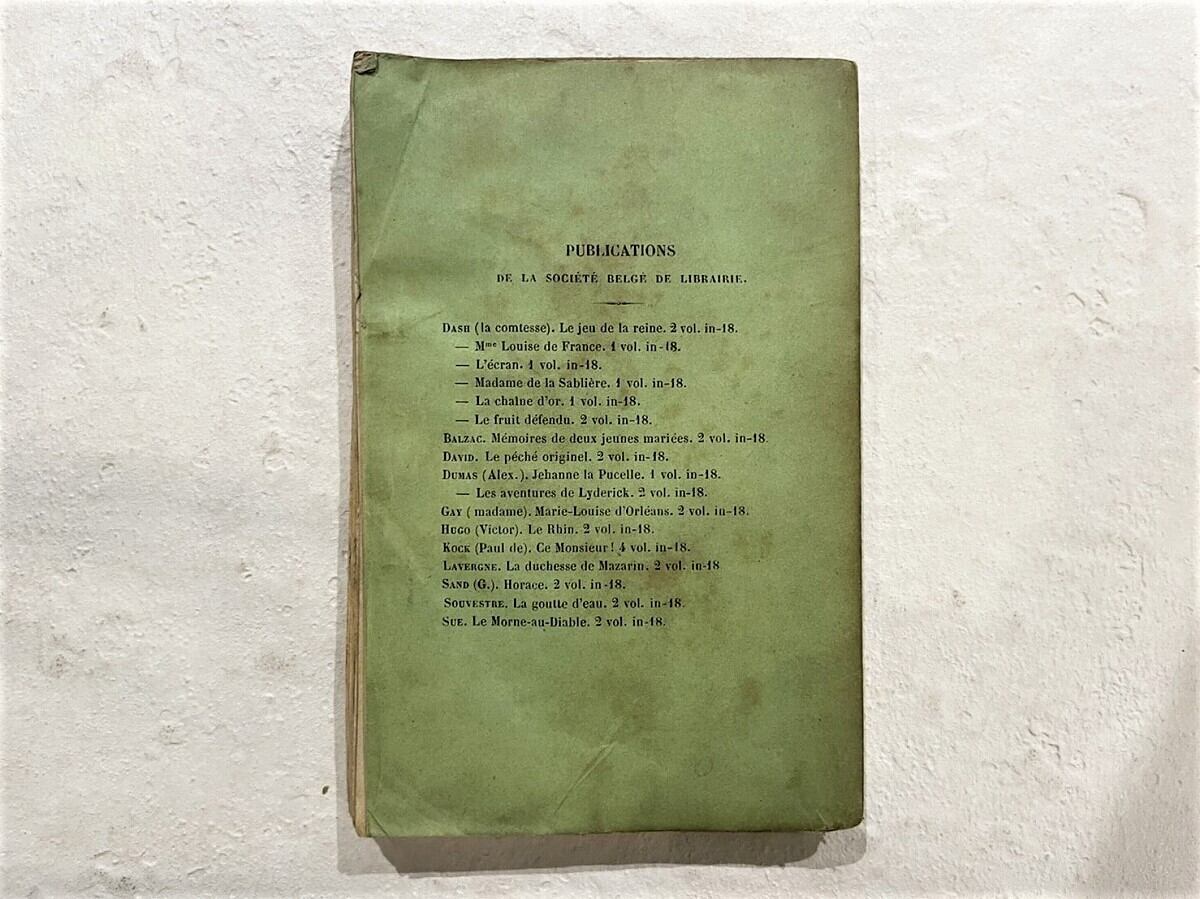 PUBLICATIONS
DE LA SOCIÉTÉ BELGE DE LIBRAIRIE.
DASH (la comtesse). Le jeu de la reine. 2 vol. in-18.
— Mme Louise de France. 1 vol. in-18.
— L'écran. 1 vol. in-18.
— Madame de la Sablière. 1 vol. in-18.
— La chaîne d'or. 1 vol. in-18.
— Le fruit défendu. 2 vol. in-18.
BALZAC. Mémoires de deux jeunes mariées. 2 vol. in-18.
DAVID. Le péché originel. 2 vol. in-18.
DUMAS (Alex.). Jehanne la Pucelle. 1 vol. in-18.
— Les aventures de Lyderick. 2 vol. in-18.
GAY (madame). Marie-Louise d'Orléans. 2 vol. in-18.
HUGO (Victor). Le Rhin. 2 vol. in-18.
KOCK (Paul de). Ce Monsieur! 4 vol. in-18.
LAVERGNE. La duchesse de Mazarin. 2 vol. in-18
SAND (G.). Horace. 2 vol. in-18.
SOUVESTRE. La goutte d'eau. 2 vol. in-18.
SUE. Le Morne-au-Diable. 2 vol. in-18.